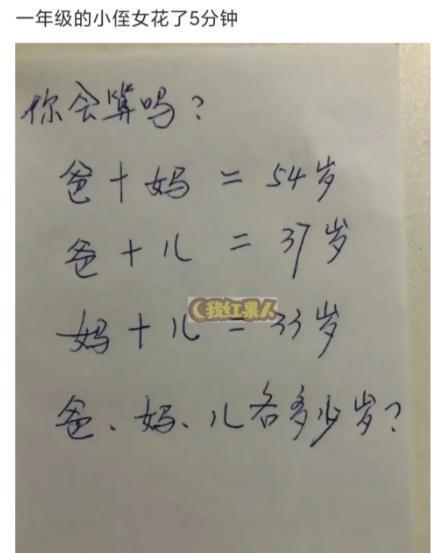 一年级的小侄女花了5分钟
你会算吗？
爸＋妈＝54岁
爸＋儿＝37岁
我红果人
妈＋儿＝33岁
爸、妈、儿各多少岁？